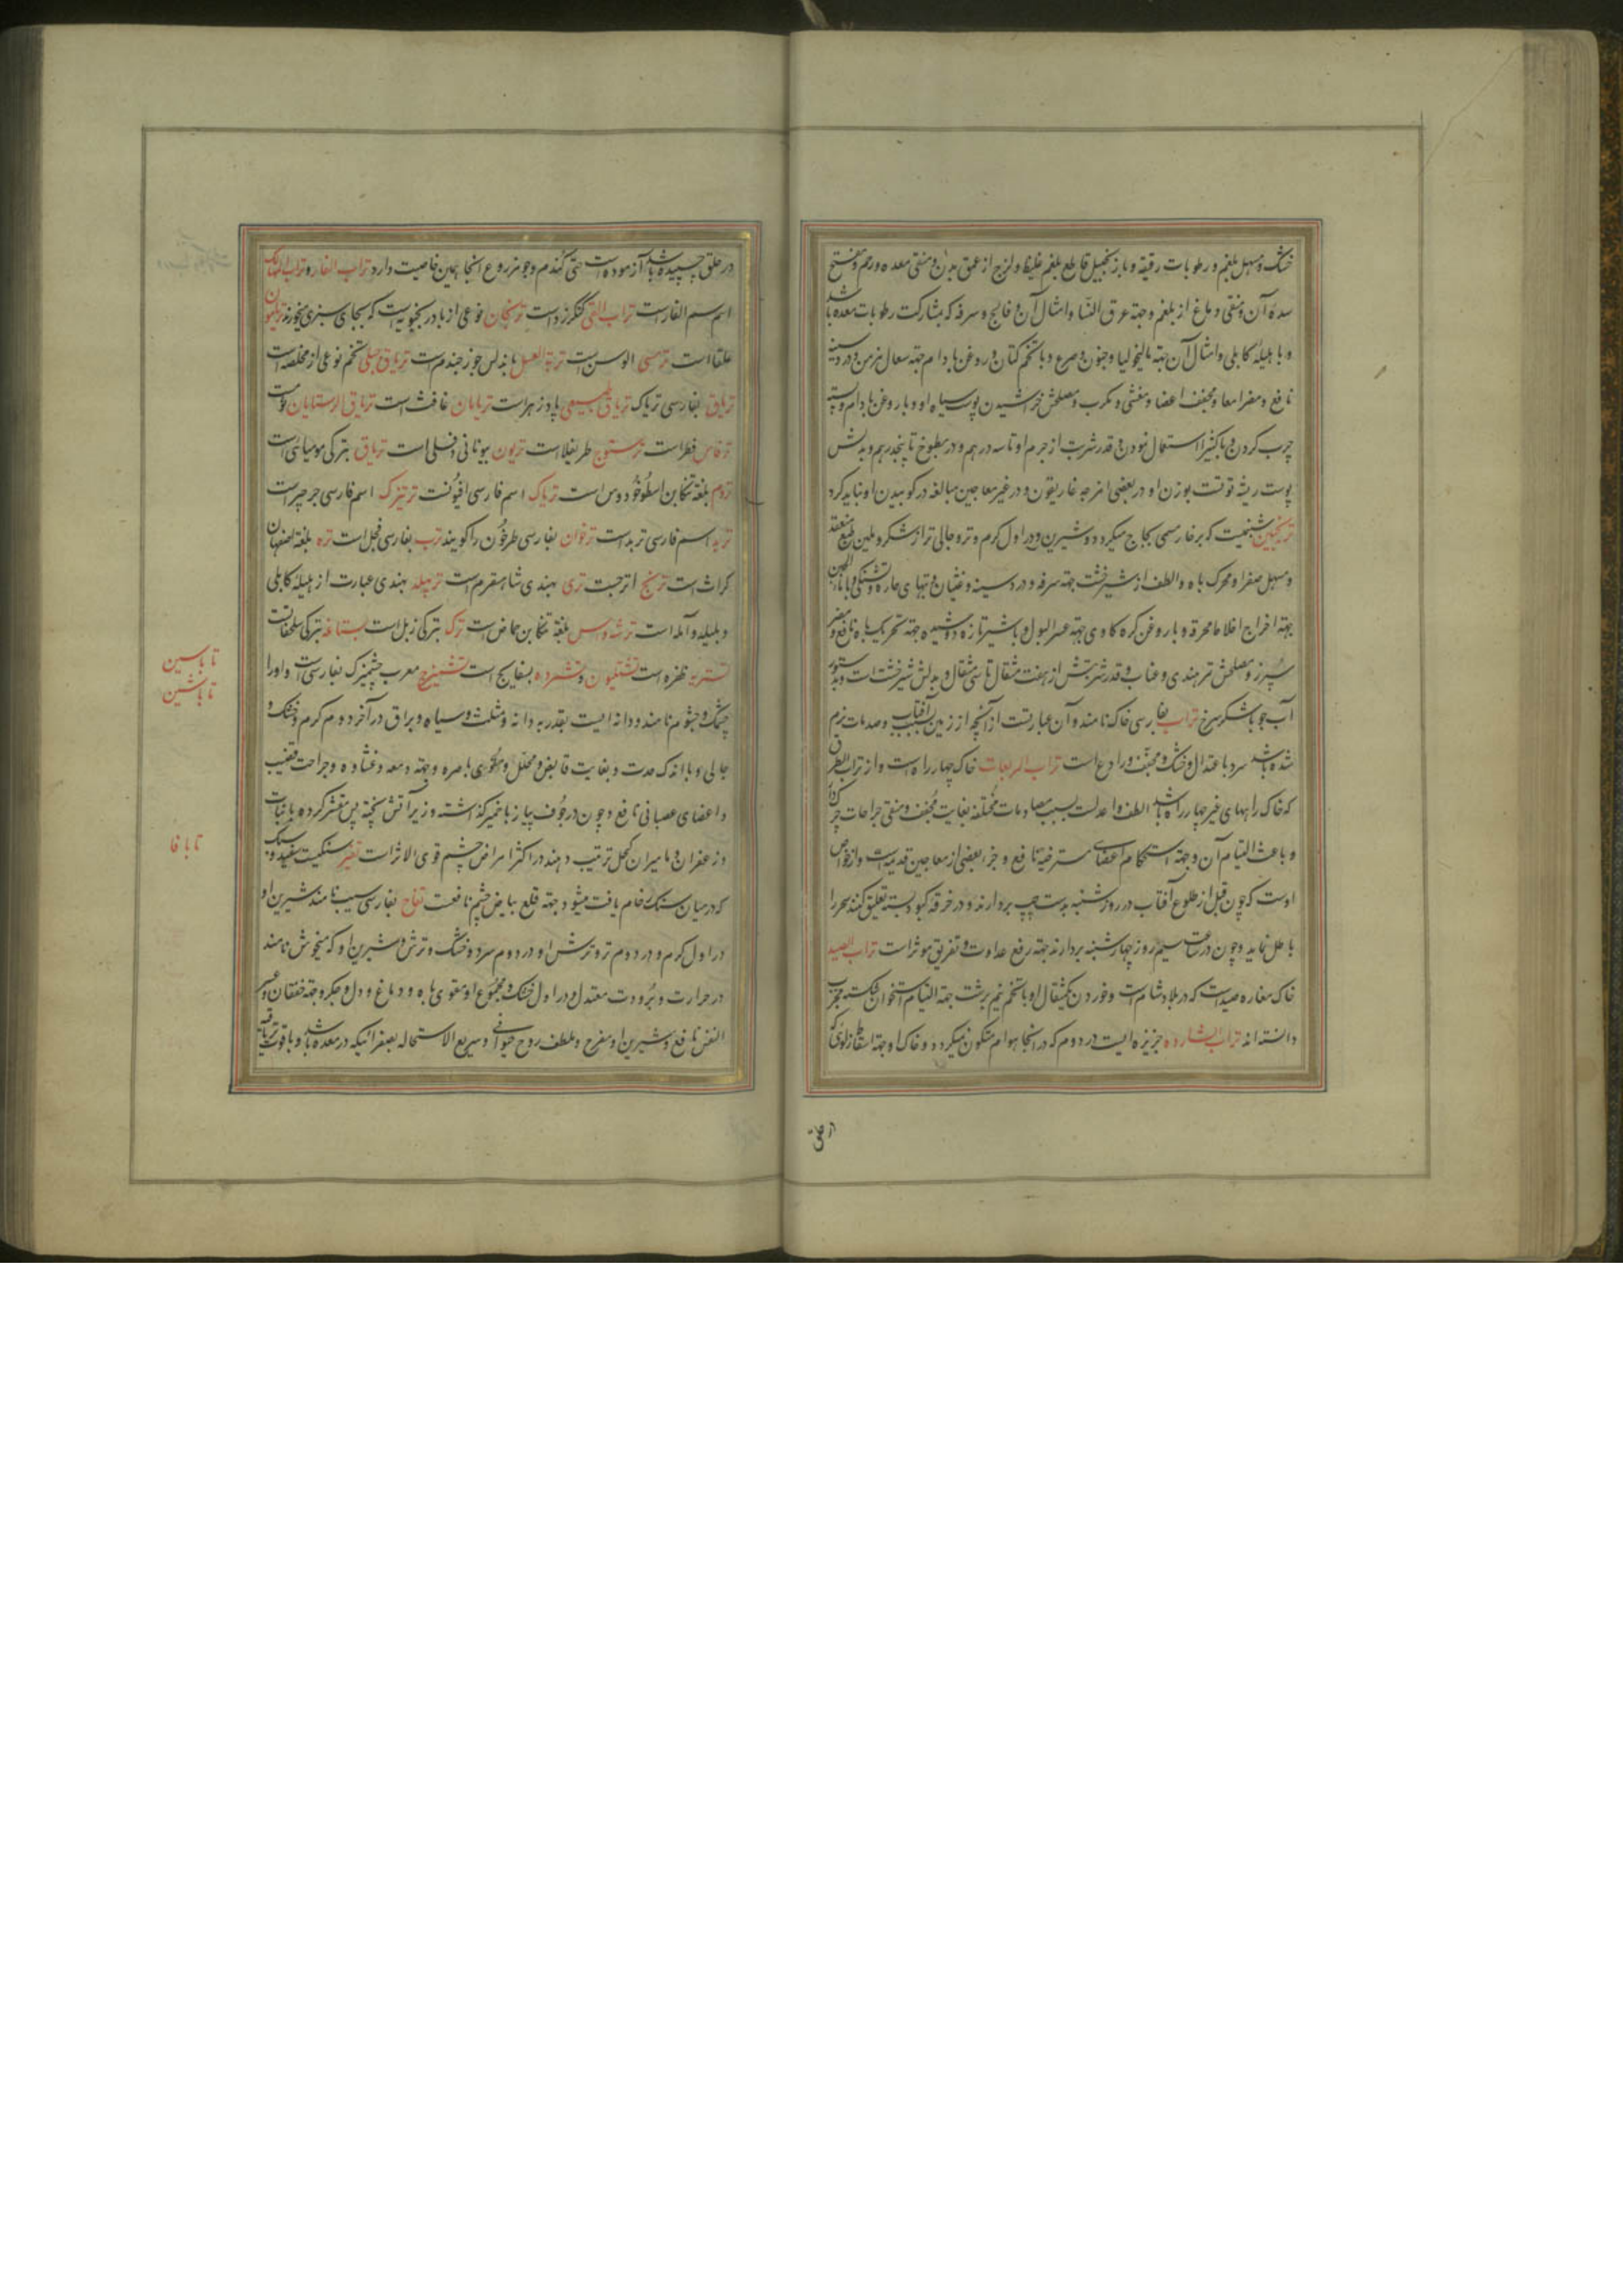 خشک و مسهل بلغم و رطوبات رقیقه و با زنجبیل قاطع بلغم غلیظ و لزج از عمق بدن و منقی معده و رحم و مفتح
سدهٔ آن و منقی دماغ از بلغم و جهة عرق النسا و امثال آن و فالج و سرفه که بمشارکت رطوبات معده باشد
و با هلیلهٔ کابلی و امثال آن جهة مالیخولیا و جنون و صرع و با تخم کتان و روغن بادام جهة سعال مزمن و درد سینه
نافع و مضر امعا و مجفف اعضا و مغثی و مکرب و مصلحش خراشیدن پوست سیاه او و با روغن بادام و پسته
چرب کردن و با کتیرا استعمال نمودن و قدر شربت از جرم او تا سه درهم و در مطبوخ تا پنجدرهم و بدلش
پوست ریشه توتست بوزن او در بعضی امزجه غاریقون و در غیر معاجین مبالغه در کوبیدن او نباید کرد
ترنجبین شبنمیست که بر خار مسمی بحاج میگردد و شیرین و در اول گرم و تر و جالی تر از شکر و ملین طبع منعقد
و مسهل صفرا و محرک باه و الطف از شیرخشت جهة سرفه و درد سینه و غثیان و تبهای حاره و تشنگی و با ماء الجبن
جهة اخراج اخلاط محرقه و با روغن گره گاوی جهة عسر البول و با شیر تازه دوشیده جهة تحریک باه نافع و مضر
سپرز و مصلحش تمر هندی و عناب و قدر شربتش از هفت مثقال تا سی مثقال و بدلش شیرخشت است و بدستور
آب جو با شکر سرخ تراب بفارسی خاک نامند و آن عبارتست از آنچه از زمین بسبب آفتاب و صدمات نرم
شده باشد سرد باعتدال و خشک و مجفف و رادع است تراب المربعات خاک چهار راه است و از تراب الطرق
که خاک راههای غیر چهار راه باشد الطف و اعدلست بسبب مصادمات مختلفه بغایت مجفف و منقی جراحات چرکدار
و باعث التیام آن و جهة استحکام اعضای مسترخیه نافع و جزء بعضی از معاجین قدیمه است و از خواص
اوست که چون قبل از طلوع آفتاب در روز شنبه بدست چپ بردارند و در خرقه کبود بسته تعلیق کنند سحر را
باطل نماید و چون در ساعت سیم روز چهارشنبه بردارند جهة رفع عداوت و تفریق موثر است تراب الصید
خاک مغاره صیداست که در بلاد شام است و خوردن یکمثقال او با تخم نیم برشت جهة التیام استخوان شکسته مجرب
دانسته اند تراب الشارده جزیزه ایست در دوم که در انجا هوام متکون نمیگردد و خاک او جهة اسقاط زلوی که
در حلق
در حلق چسپیده باشد آزموده است حتی گندم و جو مزروع انجا همین خاصیت دارد تراب الفار و تراب الهالک
اسم سم الفار است تراب القی کنکرزد است ترنجان نوعی از بادرنجبویه است که بجای سبزی میخورند
علقا است ترمسی الوسن است تربة العسل باندلس جوز جندم است تریاق جبلی تخم نوعی از مخلصه است
تریاق بفارسی تریاک تریاق طبیعی پادزهر است تریابان غافث است تریاق الرستایان ثوم است
ترفاس فطر است ترستوج طریغلا است تریون بیونانی دفلی است تریاق بترکی مومیائی است
تروم بلغة تنکابن اسطوخودوس است تریاک اسم فارسی افیونست ترتیزک اسم فارسی جرجیر است
تربد اسم فارسی تربد است ترخوان بفارسی طرخون را گویند ترب بفارسی فجل است تره بلغة اصفهان
کراث است ترنج اترجست تری بهندی شاهسفرم است ترپهله بهندی عبارت از هلیلهٔ کابلی
و بلیله و آمله است ترشه واس بلغة تنکابن حماض است ترک بترکی زبل است تستاغه بترکی سلحفاتست
تستریه ظفره است تشتیون و تشرده بسفایج است تشمیزج معرب چشمیزک بفارسی است و او را
چشمک و چشوم نامند و دانه ایست بقدر به دانه و مثلث و سیاه و براق در آخر دوم گرم و خشک و
جالی و با اندک حدت و بغایت قابض و محلل و مقوی باصره و جهة دمعه و غشاوه و جراحت قضیب
و اعضای عصبانی نافع و چون در جوف پیاز یا خمیر گذاشته و زیر آتش پخته پس مقشر کرده با نبات
و زعفران و مامیران کحل ترتیب دهند در اکثر امراض چشم قوی الاثر است تغیر سنگیست سفید و سبک
که در میان سنگ خام یافت میشود جهة قلع بیاض چشم نافعست تفاح بفارسی سیب نامند شیرین او
در اول گرم و در دوم تر و ترش او در دوم سرد و خشک و ترش و شیرین او که میخوش نامند
در حرارت و برودت معتدل و در اول خشک و مجموع او مقوی باه و دماغ و دل و جگر و جهة خفقان و عسر
النفس نافع و شیرین او مفرح و ملطف روح حیوانی و سریع الاستحاله بصفرائیکه در معده باشد و با قوت تریاقیه
تا با سین
تا با شین
تا با فا